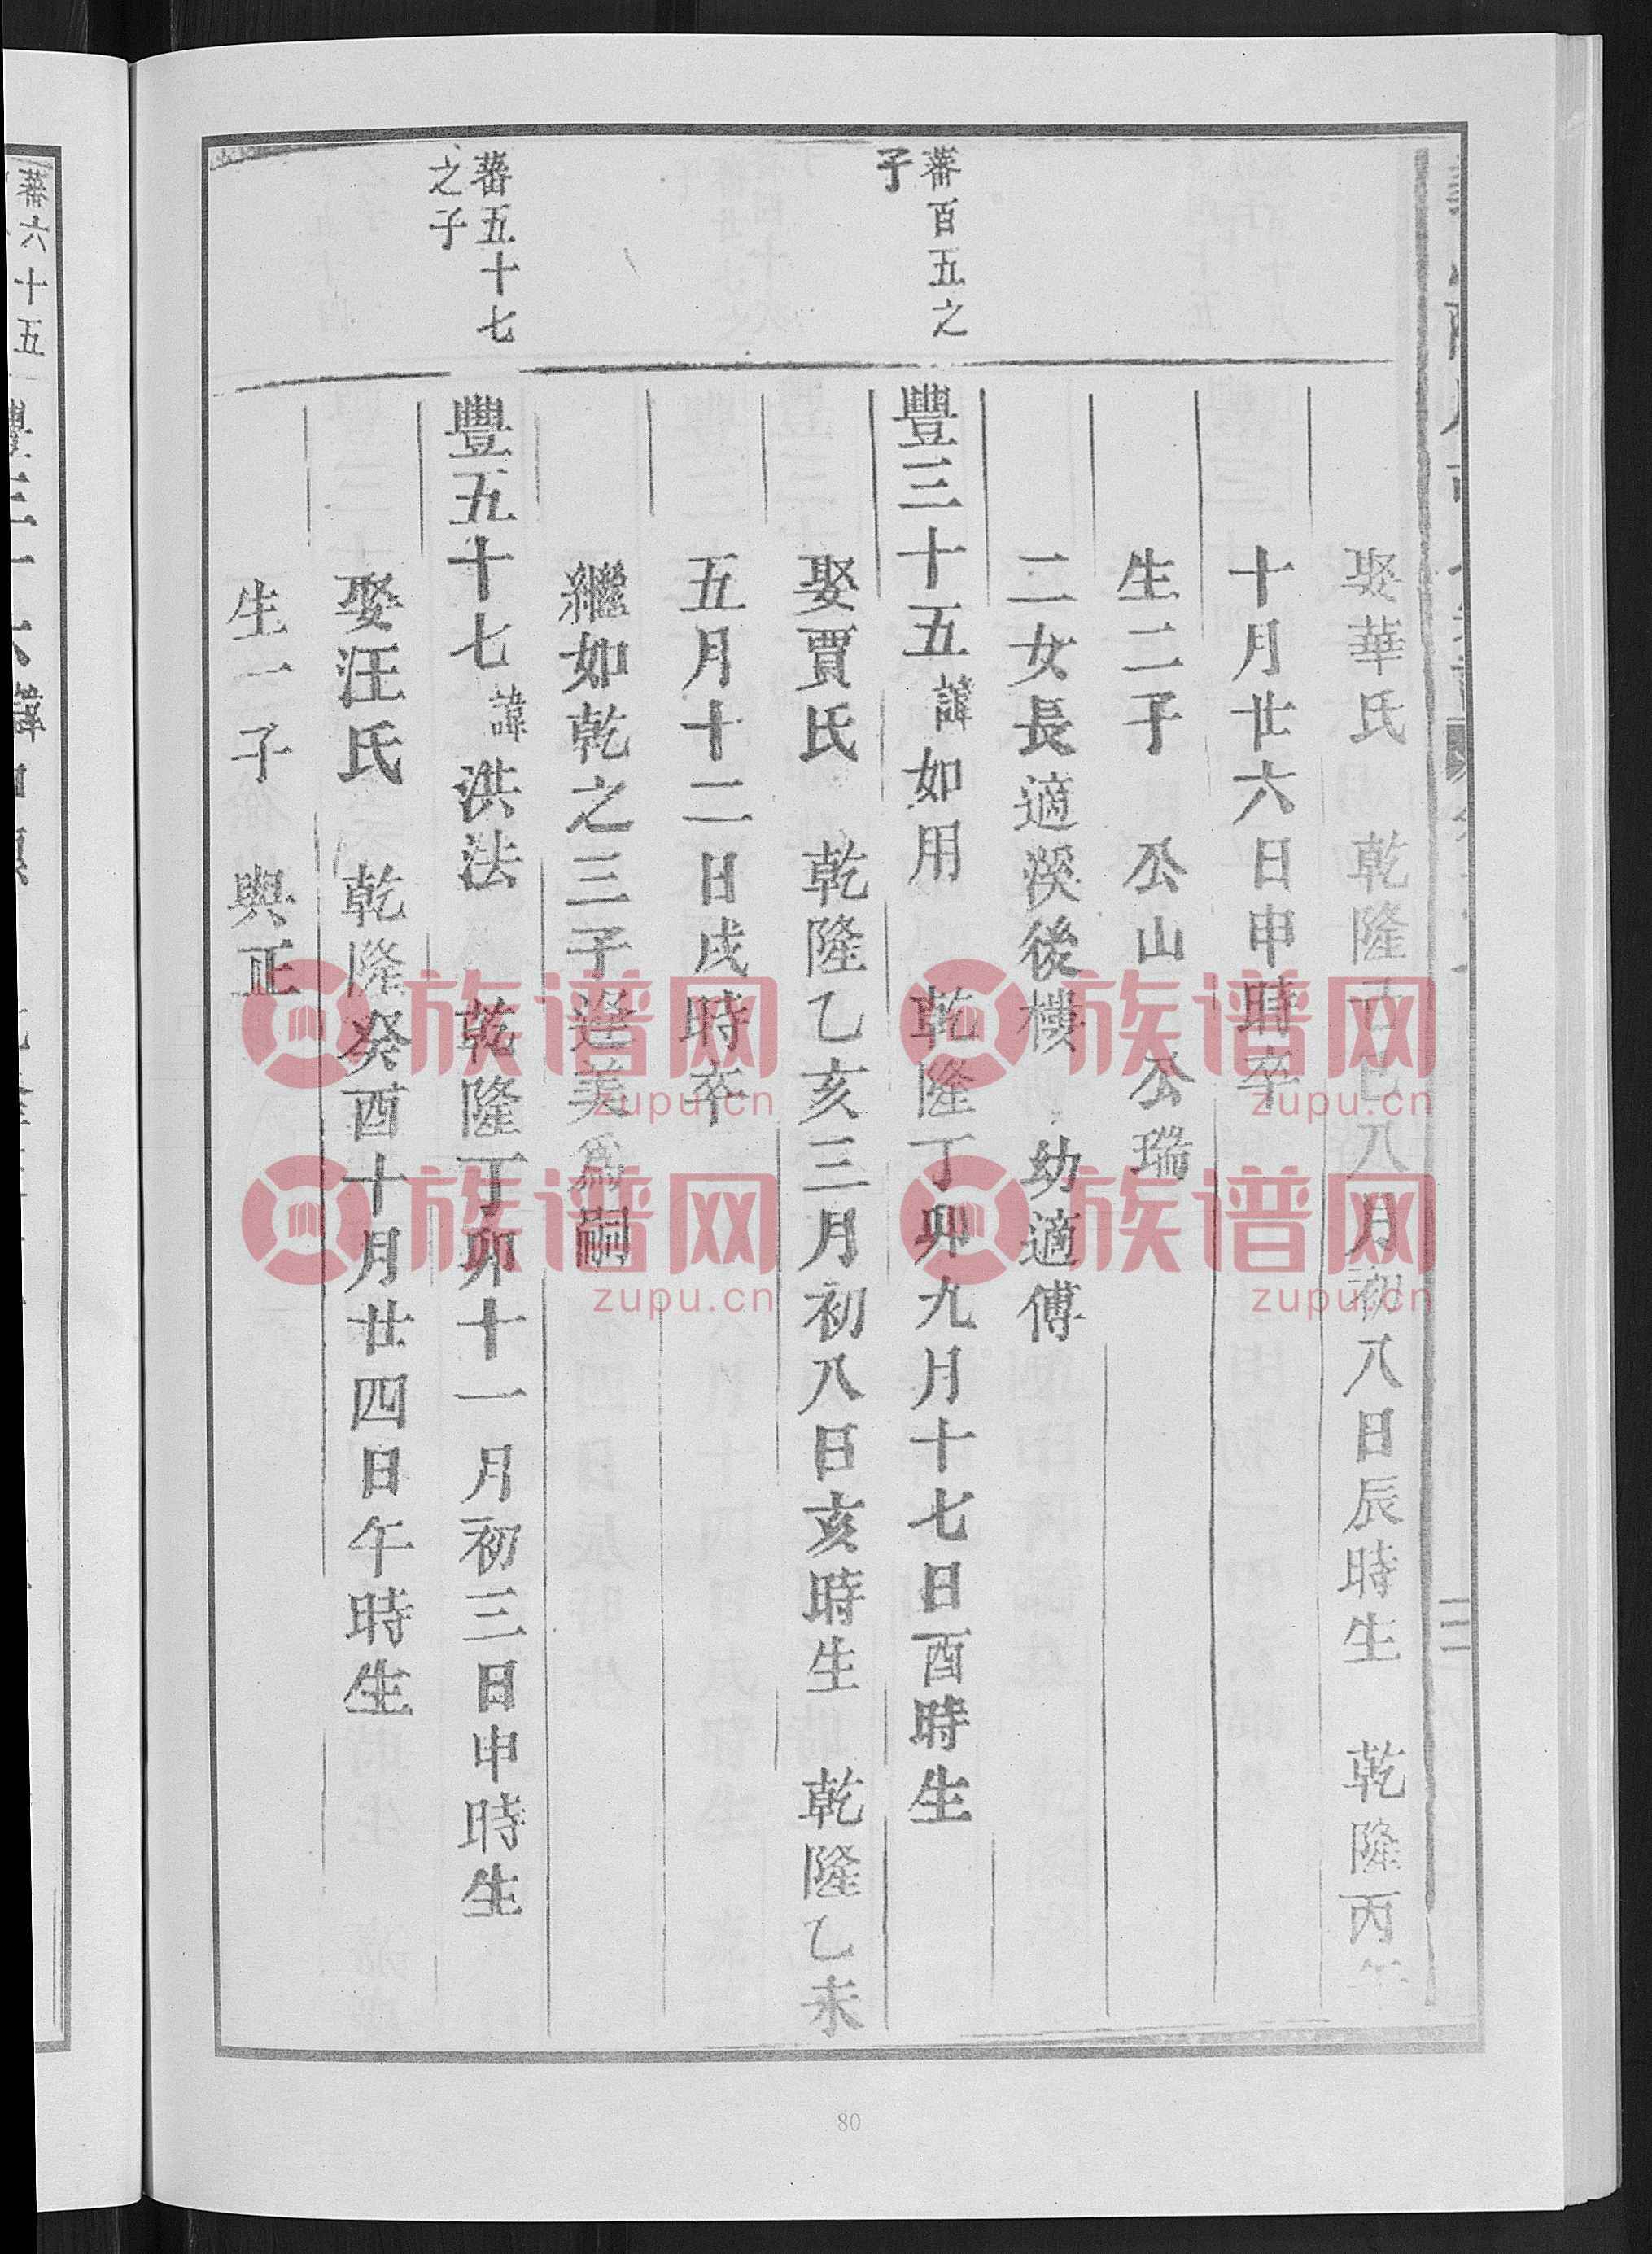 娶華氏 乾隆己巳八月初八日辰時生 乾隆丙午
十月廿六日申時卒
生二子 公山 公瑞
二女長適 後樓 幼適傅
蕃百五之
子
豐三十五 諱 如用 乾隆丁卯九月十七日酉時生
娶賈氏 乾隆乙亥三月初八日亥時生 乾隆乙未
五月十二日戌時卒
繼如乾之三子逢美為嗣
蕃五十七
之子
豐五十七 諱 洪法 乾隆丁卯十一月初三日申時生
娶汪氏 乾隆癸酉十月廿四日午時生
生一子 興正
蕃六十五
豐三十六 諱
二
80
族谱网
zupu.cn
族谱网
zupu.cn
族谱网
zupu.cn
族谱网
zupu.cn